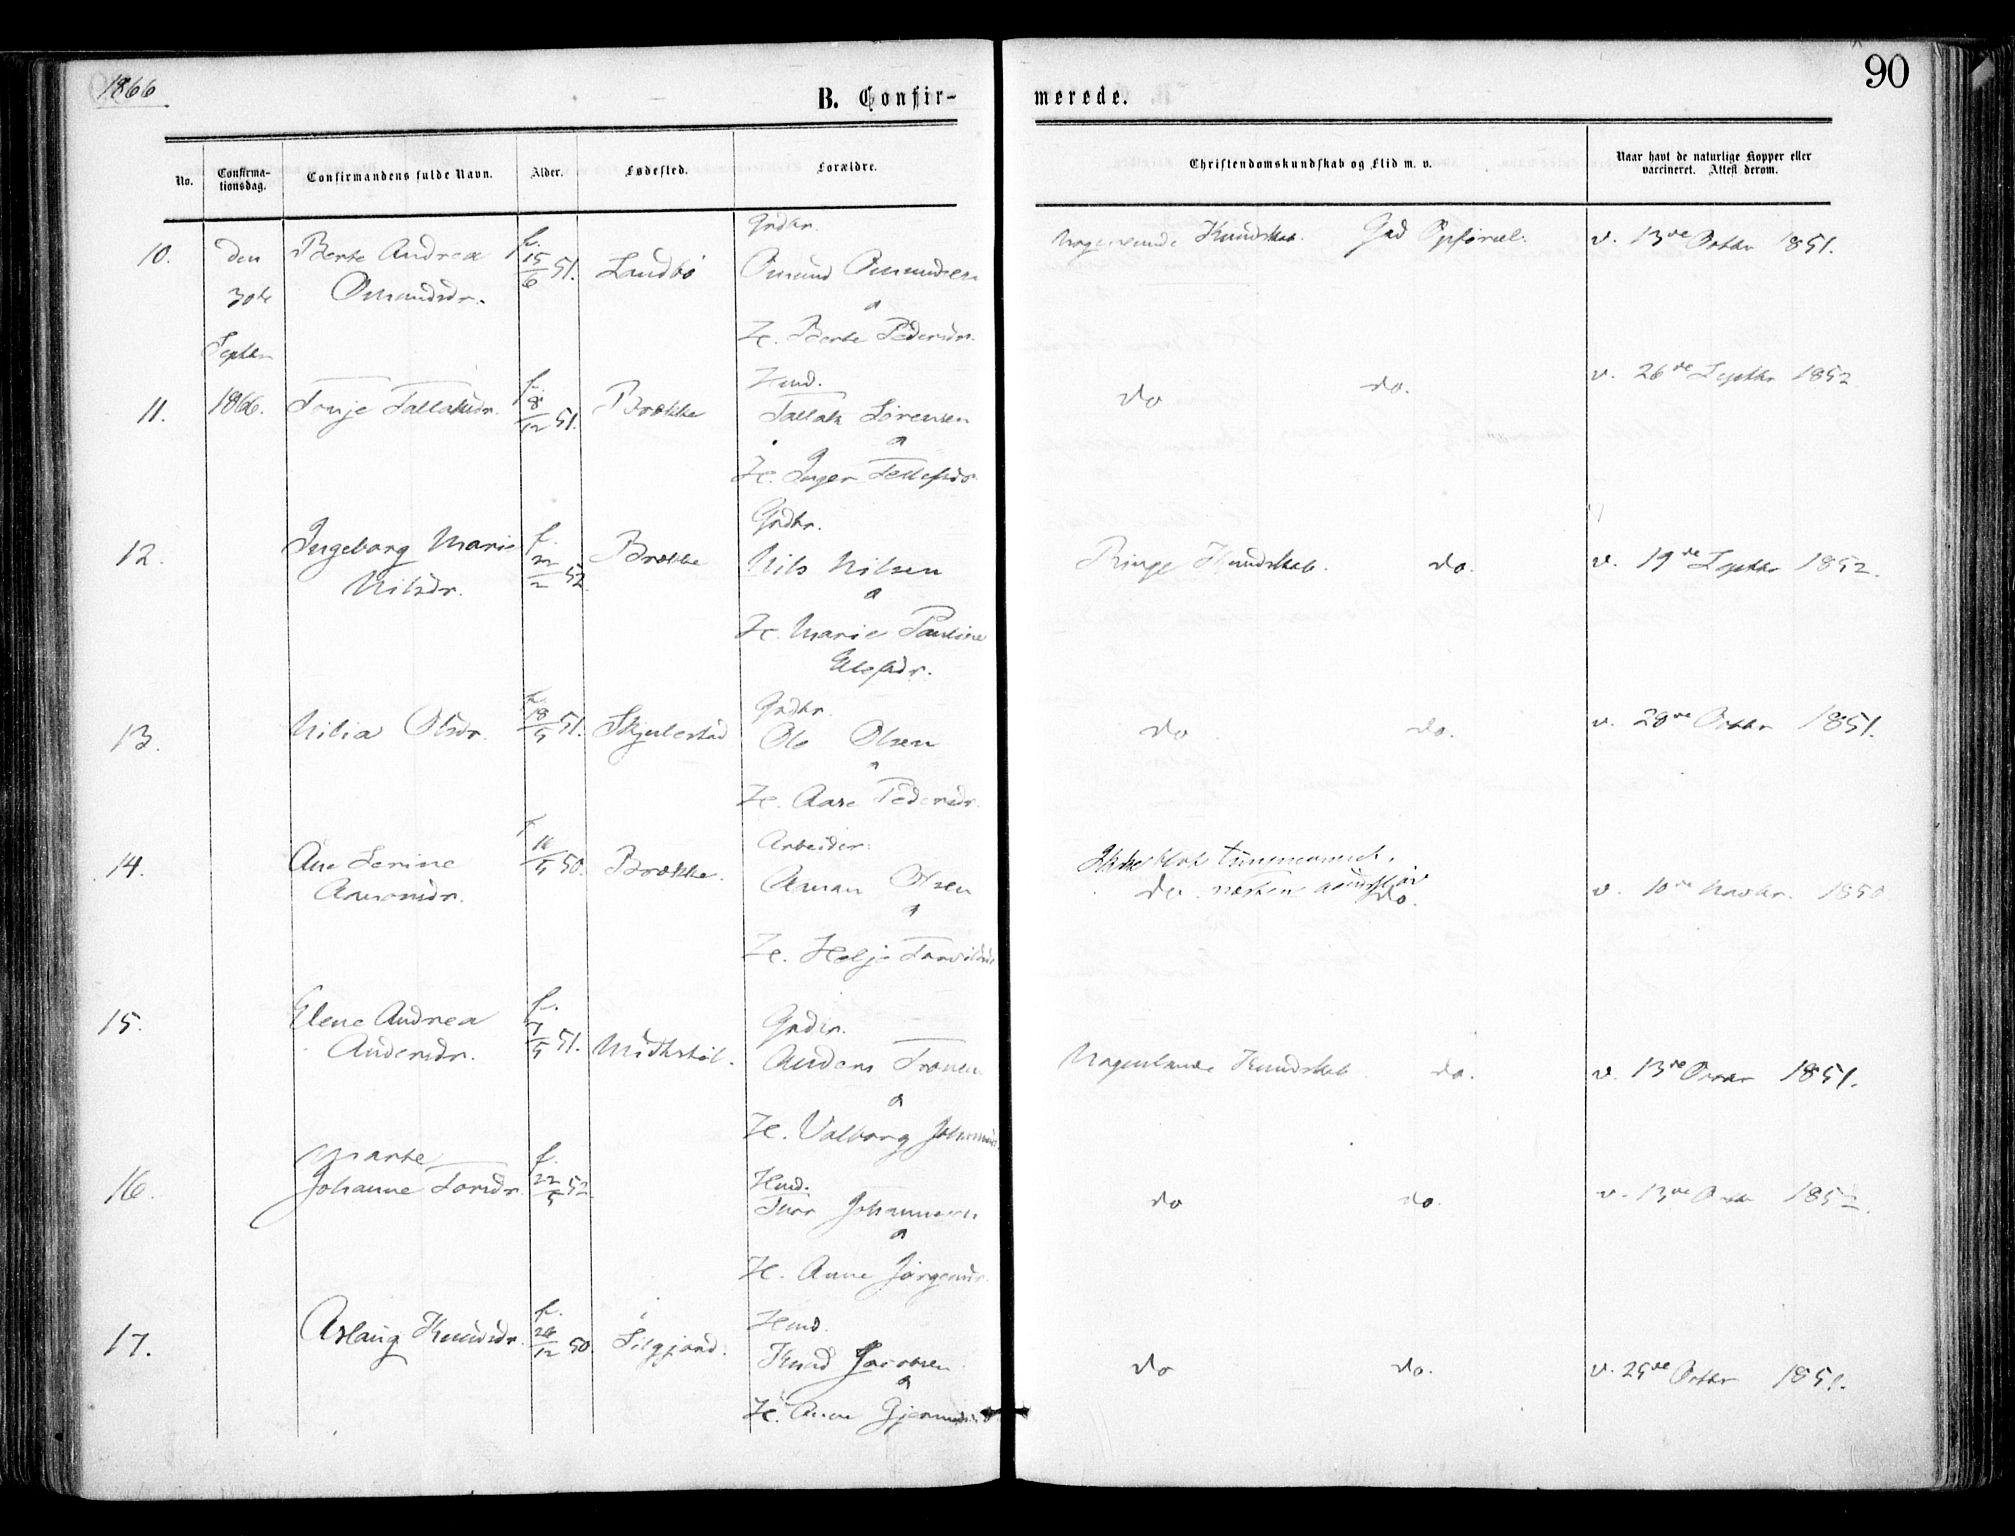 1866
90
B. Confirmerede.
No. Confirmationsdag. Confirmandens fulde Navn. Alder. Fødested. Forældre. Christendomskundskab og Flid m. v. Naar havt de naturlige Kopper eller vaccineret. Attest derom.
10. den 30te Septbr 1866. Berte Andrea
Omundsdr.
f. 15/6 51.
Landbø
Grdbr.
Omund Omundsen
o
H. Berte Pedersdr.
Nogenlunde Kundskab. God Opførsel.
v. 13de Octbr 1851.
11. Tonje Tallaksdr.
f. 8/12 51.
Brække
Hmd.
Tallak Sørensen
o
H. Inger Tellefsdr.
do do.
v. 26de Septbr 1852
12. Ingeborg Marie
Nilsdr.
f. 22/2 52
Brække
Grdbr.
Nils Nilsen
o
H. Marie Pauline
Ringe Kundskab. do.
v. 19de Septbr 1852.
13. Nilia Olsdr.
f. 18/5 51.
Skjulestad
Grdbr.
Ole Olsen
o
H. Aase Pedersdr.
do do.
v. 28de Octbr 1851.
14. Ane Serine
f. 16/5 50.
Brække.
Arbeider.
Aman Olsen
o
H. Helje
do. næsten do.
v. 10de Novbr. 1850
15. Elene Andrea
Andersdr.
f. 7/5 51.
Grdbr.
Anders
o
H. Valborg
Nogenlunde Kundskab do.
v. 13de Octbr 1851.
16. Marte
Johanne Torsdr.
f. 22/5 52.
Hmd.
Tor Johannesen
o
H. Anne Jørgensdr.
do do.
v. 13de Octbr 1852.
17. Aslaug Knudsdr.
f. 28/12 50.
Hmd.
Knud Jacobsen
o
H. Anne
do do.
v. 25de Octbr 1851.